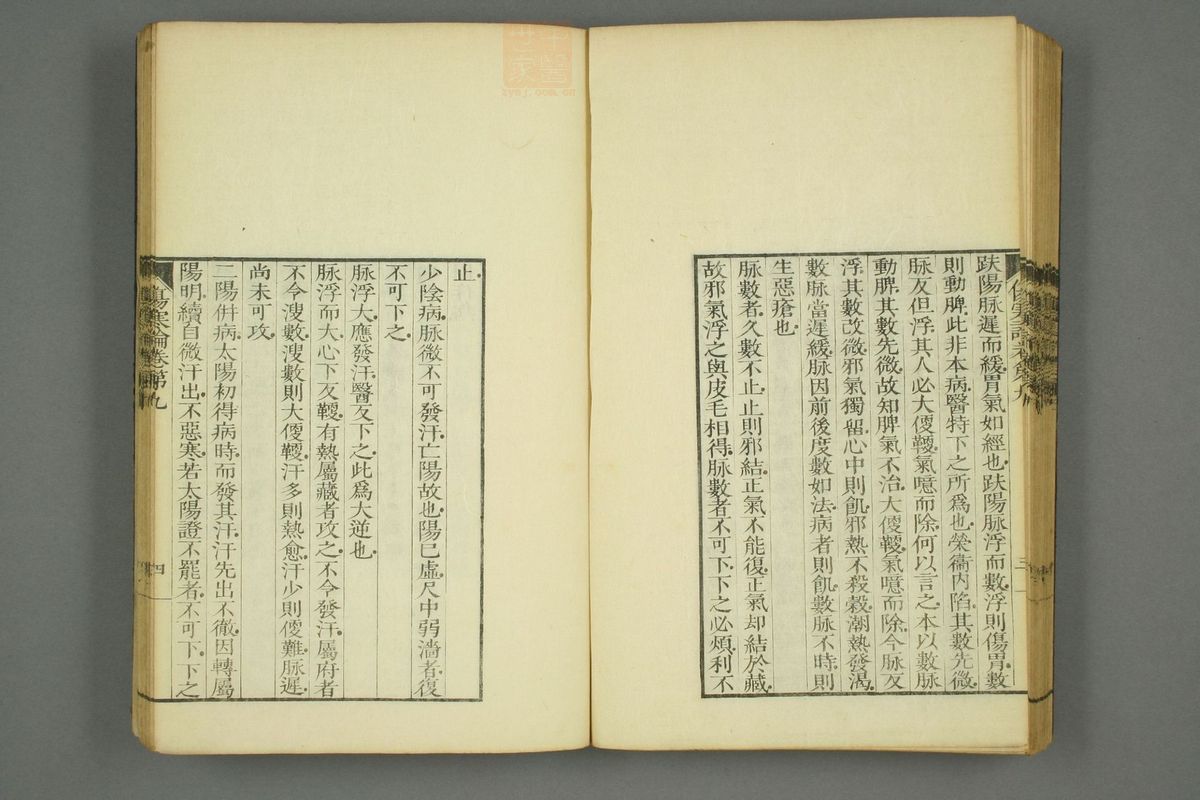 趺陽脉遲而緩、胃氣如經也、趺陽脉浮而數、浮則傷胃、數
則動脾、此非本病、醫特下之所爲也、榮衞內陷、其數先微、
脉反但浮、其人必大便鞕、氣噫而除、何以言之、本以數脉
動脾、其數先微、故知脾氣不治、大便鞕、氣噫而除、今脉反
浮、其數改微、邪氣獨留、心中則飢、邪熱不殺穀、潮熱發渴、
數脉當遲緩、脉因前後度數如法、病者則飢、數脉不時、則
生惡瘡也、
脉數者、久數不止、止則邪結、正氣不能復、正氣却結於藏、
故邪氣浮之、與皮毛相得、脉數者、不可下、下之必煩、利不
止、
少陰病、脉微、不可發汗、亡陽故也、陽已虛、尺中弱濇者、復
不可下之、
脉浮大、應發汗、醫反下之、此爲大逆也、
脉浮而大、心下反鞕、有熱屬藏者、攻之、不令發汗、屬府者、
不令溲數、溲數則大便鞕、汗多則熱愈、汗少則便難、脉遲、
尚未可攻、
二陽併病、太陽初得病時、而發其汗、汗先出不徹、因轉屬
陽明、續自微汗出、不惡寒、若太陽證不罷者、不可下、下之
傷寒論卷第九
四
三